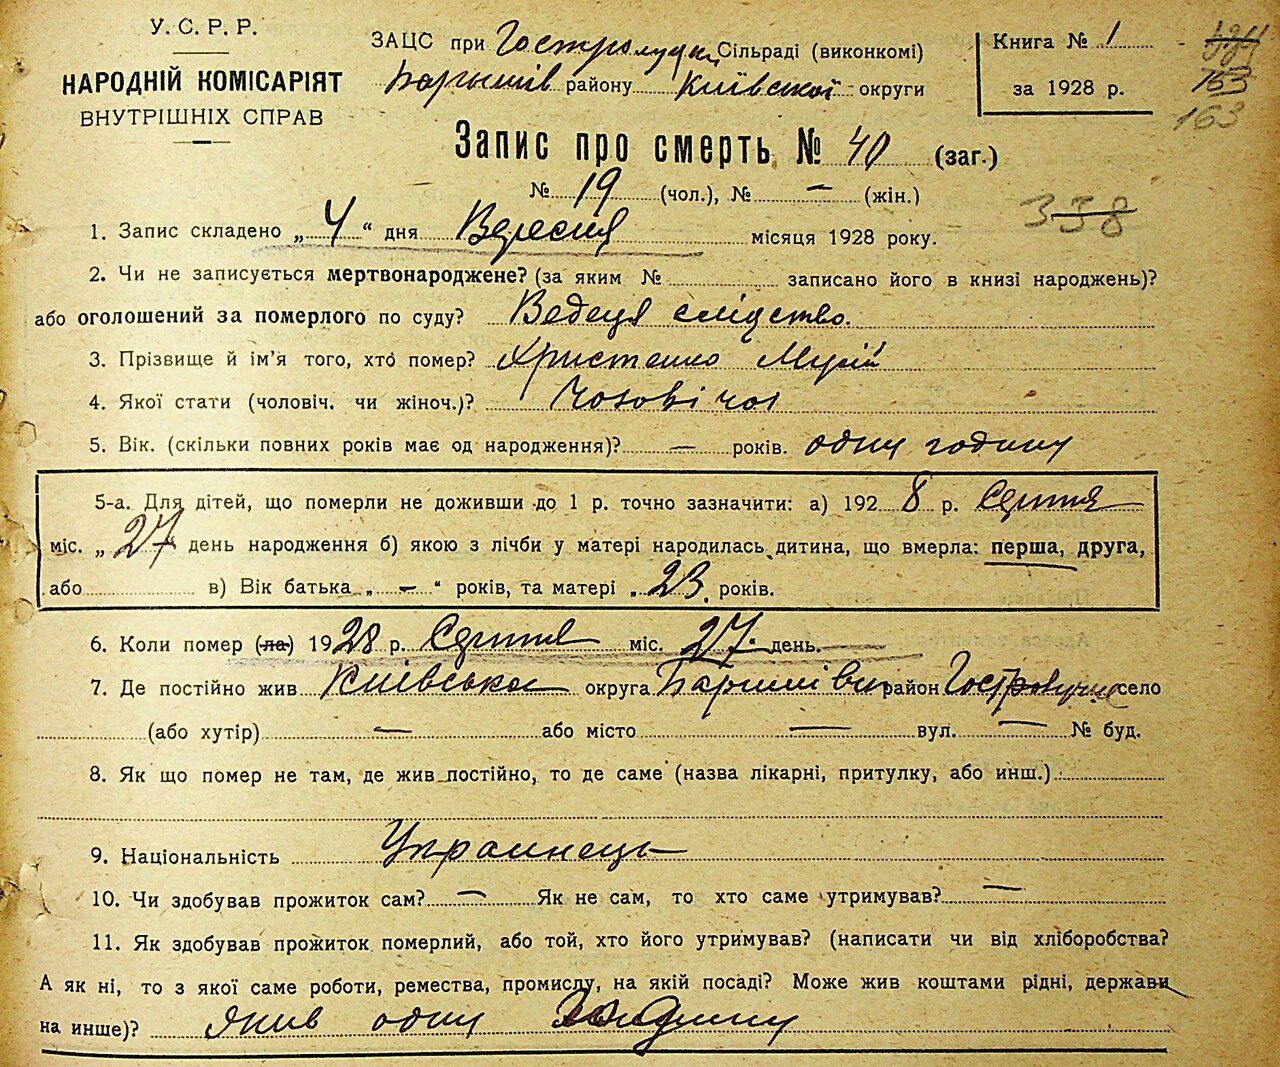 У. С. Р. Р.
НАРОДНІЙ КОМІСАРІЯТ
ВНУТРІШНІХ СПРАВ
ЗАЦС при Гостролуцкій Сільраді (виконкомі)
Баришів району Київської округи
Книга № 1
за 1928 р.
163
163
Запис про смерть № 40 (заг.)
№ 19 (чол.), № — (жін.)
338
1. Запис складено „ 4 “ дня Вересня місяця 1928 року.
2. Чи не записується мертвонароджене? (за яким № записано його в книзі народжень)?
або оголошений за померлого по суду? Ведеця слідство.
3. Прізвище й ім'я того, хто помер? Христенко Мусій
4. Якої стати (чоловіч. чи жіноч.)? Чоловічої
5. Вік. (скільки повних років має од народження)? — років. одну годину
5-а. Для дітей, що померли не доживши до 1 р. точно зазначити: а) 192 8 р. Серпня
міс. „ 27 день народження б) якою з лічби у матері народилась дитина, що вмерла: перша, друга,
або в) Вік батька „ — “ років, та матері „ 23. років.
6. Коли помер (ла) 1928 р. Серпня міс. 27 день.
7. Де постійно жив Київська округа Баришівськ район Гостролуччє село
(або хутір) — або місто — вул. — № буд.
8. Як що помер не там, де жив постійно, то де саме (назва лікарні, притулку, або инш.)
9. Національність Украинець
10. Чи здобував прожиток сам? — Як не сам, то хто саме утримував? —
11. Як здобував прожиток померлий, або той, хто його утримував? (написати чи від хліборобства?
А як ні, то з якої саме роботи, ремества, промислу, на якій посаді? Може жив коштами рідні, держави
на инше)? Жив одну годину